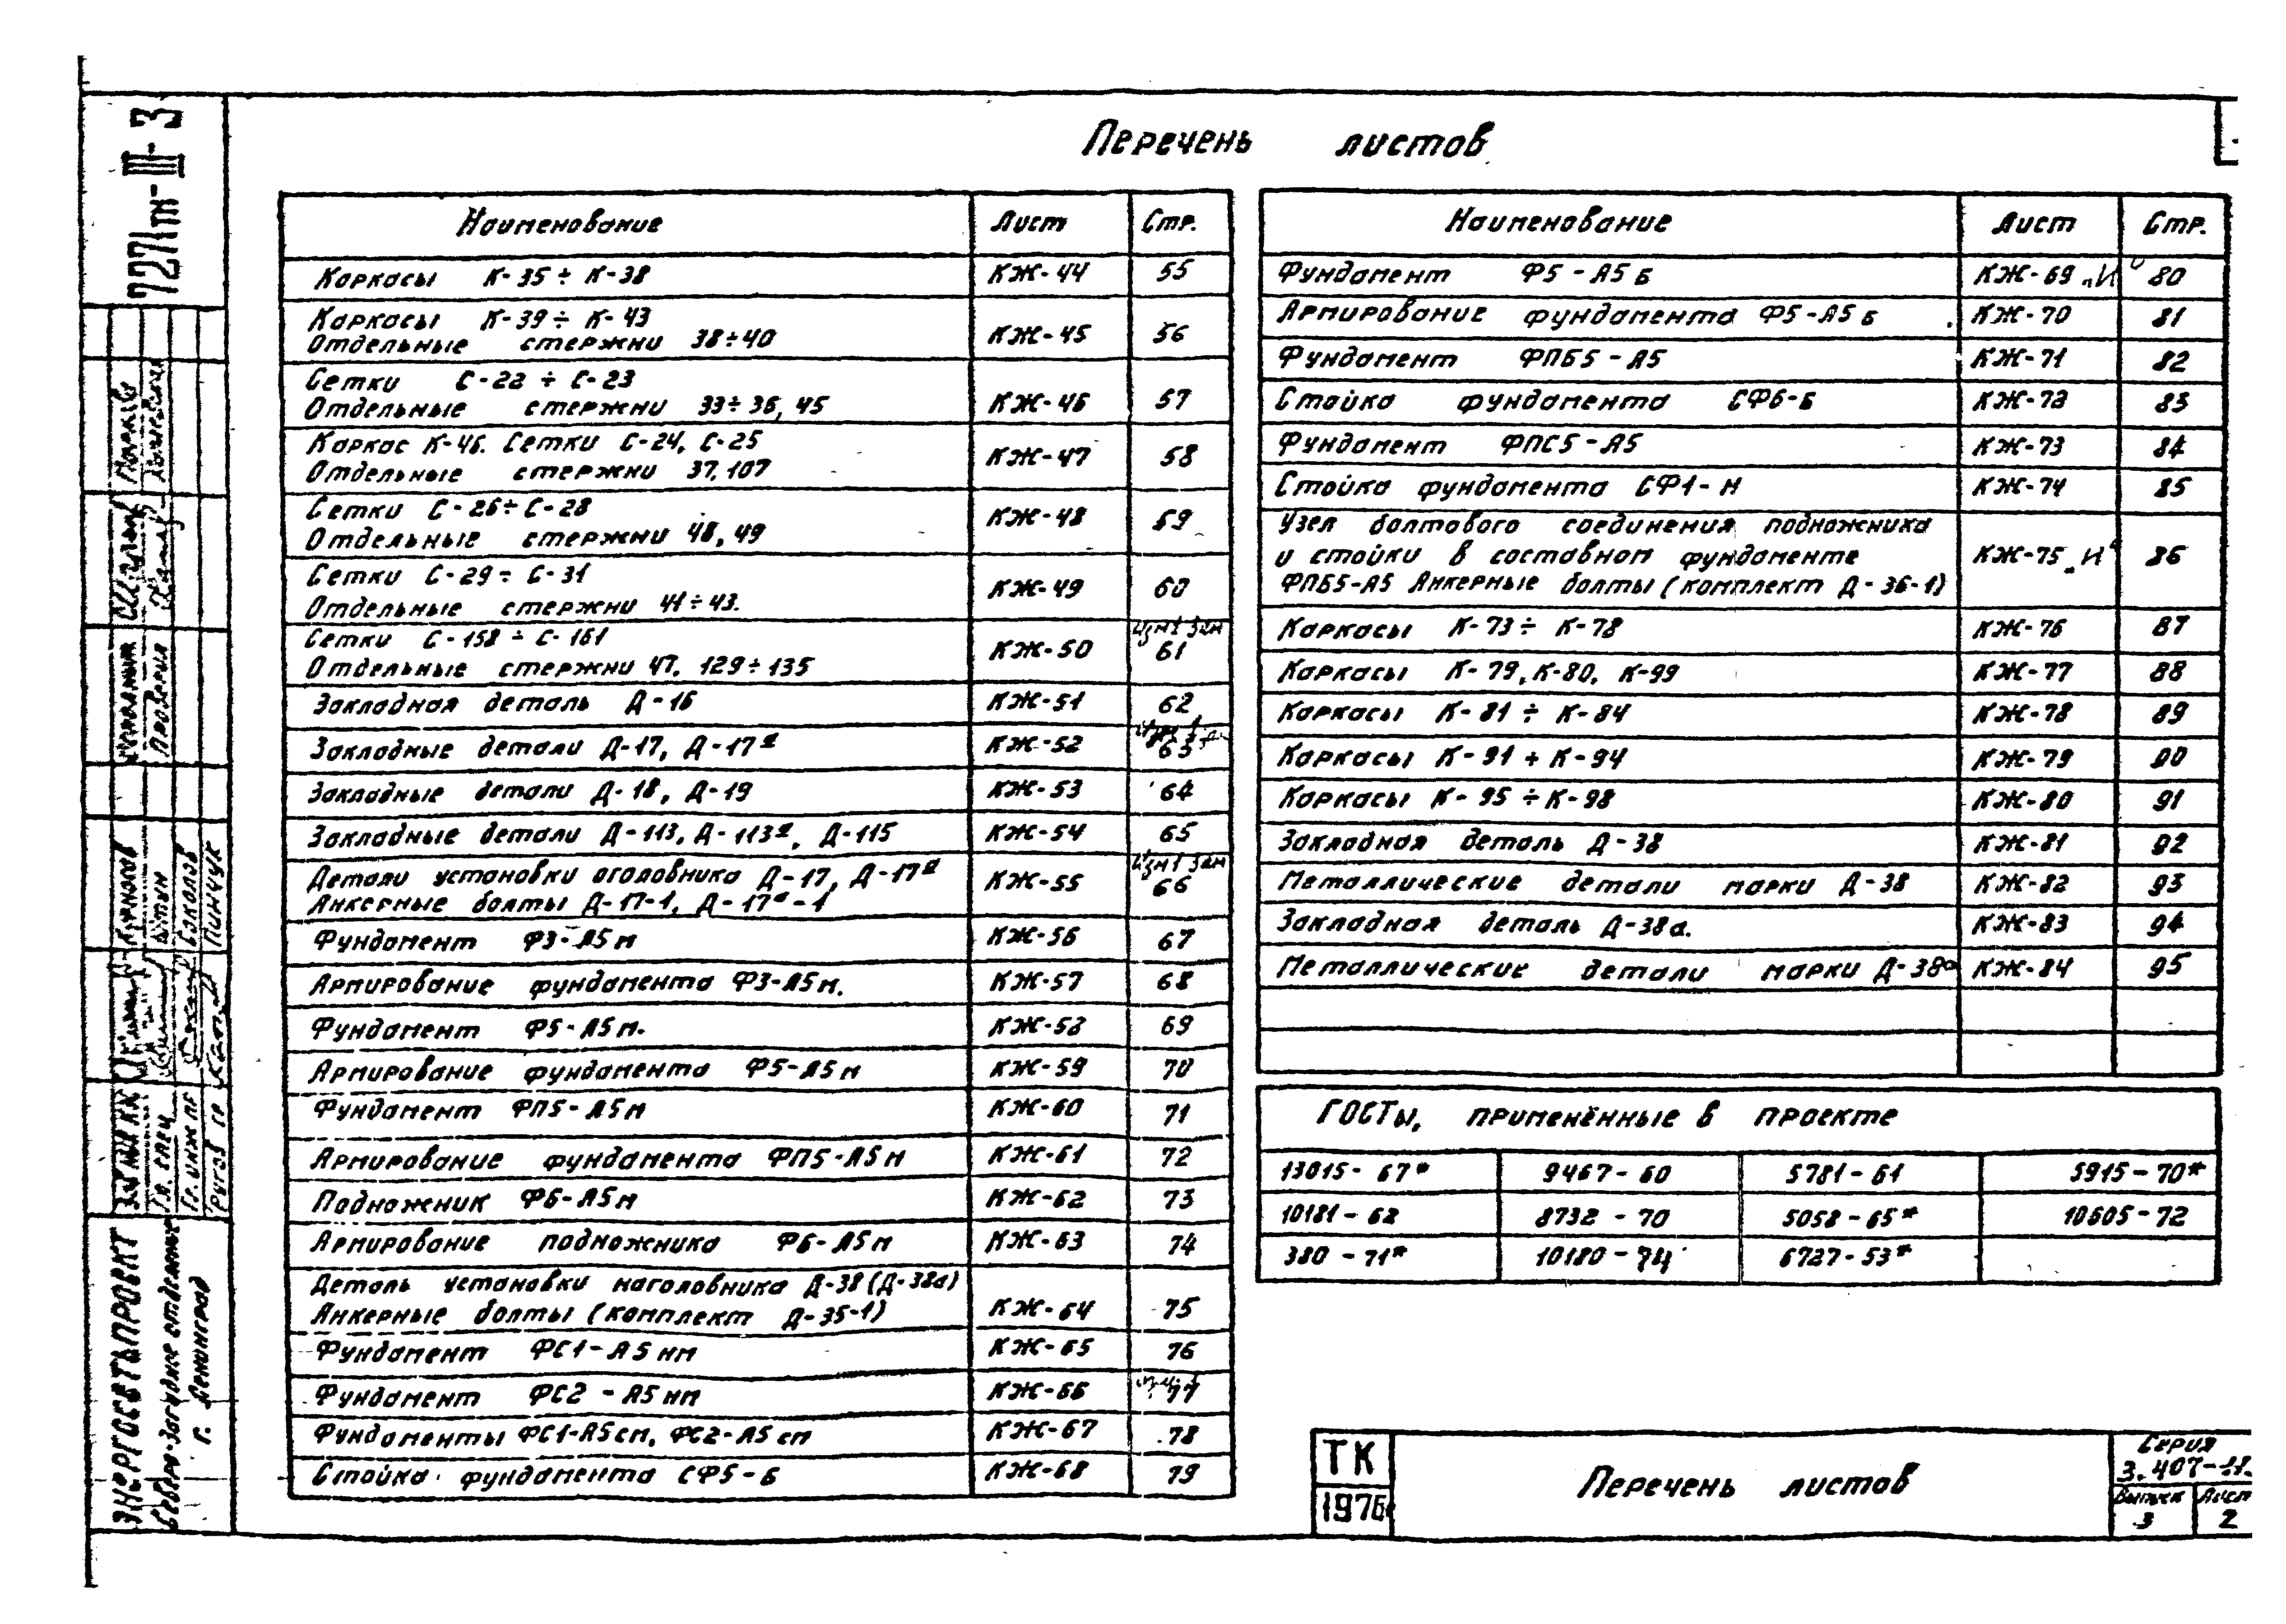 Перечень листов
Наименование Лист Стр.
Каркасы К-35 ÷ К-38 КЖ-44 55
Каркасы К-39 ÷ К-43
Отдельные стержни 38÷40 КЖ-45 56
Сетки С-22 ÷ С-23
Отдельные стержни 33÷36, 45 КЖ-46 57
Каркас К-46. Сетки С-24, С-25
Отдельные стержни 37, 107 КЖ-47 58
Сетки С-26÷С-28
Отдельные стержни 48, 49 КЖ-48 59
Сетки С-29÷С-31
Отдельные стержни 41÷43. КЖ-49 60
Сетки С-158 ÷ С-161 изм1 зам
Отдельные стержни 47, 129÷135 КЖ-50 61
Закладная деталь Д-16 КЖ-51 62
Закладные детали Д-17, Д-17а КЖ-52 63
Закладные детали Д-18, Д-19 КЖ-53 64
Закладные детали Д-113, Д-113а, Д-115 КЖ-54 65
Детали установки оголовника Д-17, Д-17а изм1 зам
Анкерные болты Д-17-1, Д-17а-1 КЖ-55 66
Фундамент Ф3-А5м КЖ-56 67
Армирование фундамента Ф3-А5м. КЖ-57 68
Фундамент Ф5-А5м. КЖ-58 69
Армирование фундамента Ф5-А5м КЖ-59 70
Фундамент ФП5-А5м КЖ-60 71
Армирование фундамента ФП5-А5м КЖ-61 72
Подножник Ф6-А5м КЖ-62 73
Армирование подножника Ф6-А5м КЖ-63 74
Деталь установки наголовника Д-38 (Д-38а)
Анкерные болты (комплект Д-35-1) КЖ-64 75
Фундамент ФС1-А5нм КЖ-65 76
Фундамент ФС2-А5нм КЖ-66 77
Фундаменты ФС1-А5см, ФС2-А5см КЖ-67 78
Стойка фундамента СФ5-б КЖ-68 79
Наименование Лист Стр.
Фундамент Ф5-А5б КЖ-69 „И“ 80
Армирование фундамента Ф5-А5б КЖ-70 81
Фундамент ФПБ5-А5 КЖ-71 82
Стойка фундамента СФ6-б КЖ-72 83
Фундамент ФПС5-А5 КЖ-73 84
Стойка фундамента СФ1-Н КЖ-74 85
Узел болтового соединения подножника
и стойки в составном фундаменте КЖ-75 „И“ 86
ФПБ5-А5 Анкерные болты (комплект Д-36-1)
Каркасы К-73 ÷ К-78 КЖ-76 87
Каркасы К-79, К-80, К-99 КЖ-77 88
Каркасы К-81 ÷ К-84 КЖ-78 89
Каркасы К-91 ÷ К-94 КЖ-79 90
Каркасы К-95 ÷ К-98 КЖ-80 91
Закладная деталь Д-38 КЖ-81 92
Металлические детали марки Д-38 КЖ-82 93
Закладная деталь Д-38а. КЖ-83 94
Металлические детали марки Д-38а КЖ-84 95
ГОСТы, применённые в проекте
13015-67* 9467-60 5781-61 5915-70*
10181-62 8732-70 5058-65* 10605-72
380-71* 10180-74 6727-53*
ТК
1976
Перечень листов
Серия
3.407-
Выпуск Лист
3 2
7271тм-III-3
Исполнил
Проверил
Соколов
Пинчук
Гл. спец
Гр. инж пр
ЭНЕРГОСЕТЬПРОЕКТ
Северо-Западное отделение
г. Ленинград